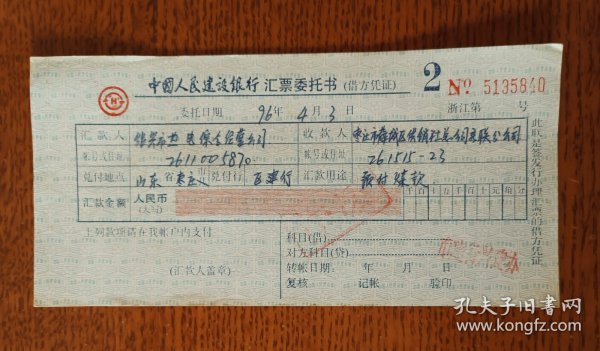 中國人民建设银行 汇票委托书 (借方凭证) 2 Nº 5135840
委托日期 96年 4月 3日 浙江第 号
汇款人
收款人
帐号或住址 2611005870 帐号或住址 261515-23
兑付地点 山东省枣庄市 兑付行 区建行 汇款用途 预付煤款
汇款金额 人民币(大写) 千百十万千百十元角分
上列款项请在我帐户内支付
(汇款人盖章)
科目(借)
对方科目(贷)
转帐日期: 年 月 日
复核 记帐 验印
此联是签发行办理汇票的借方凭证
孔夫子旧书网
www.kongfz.com